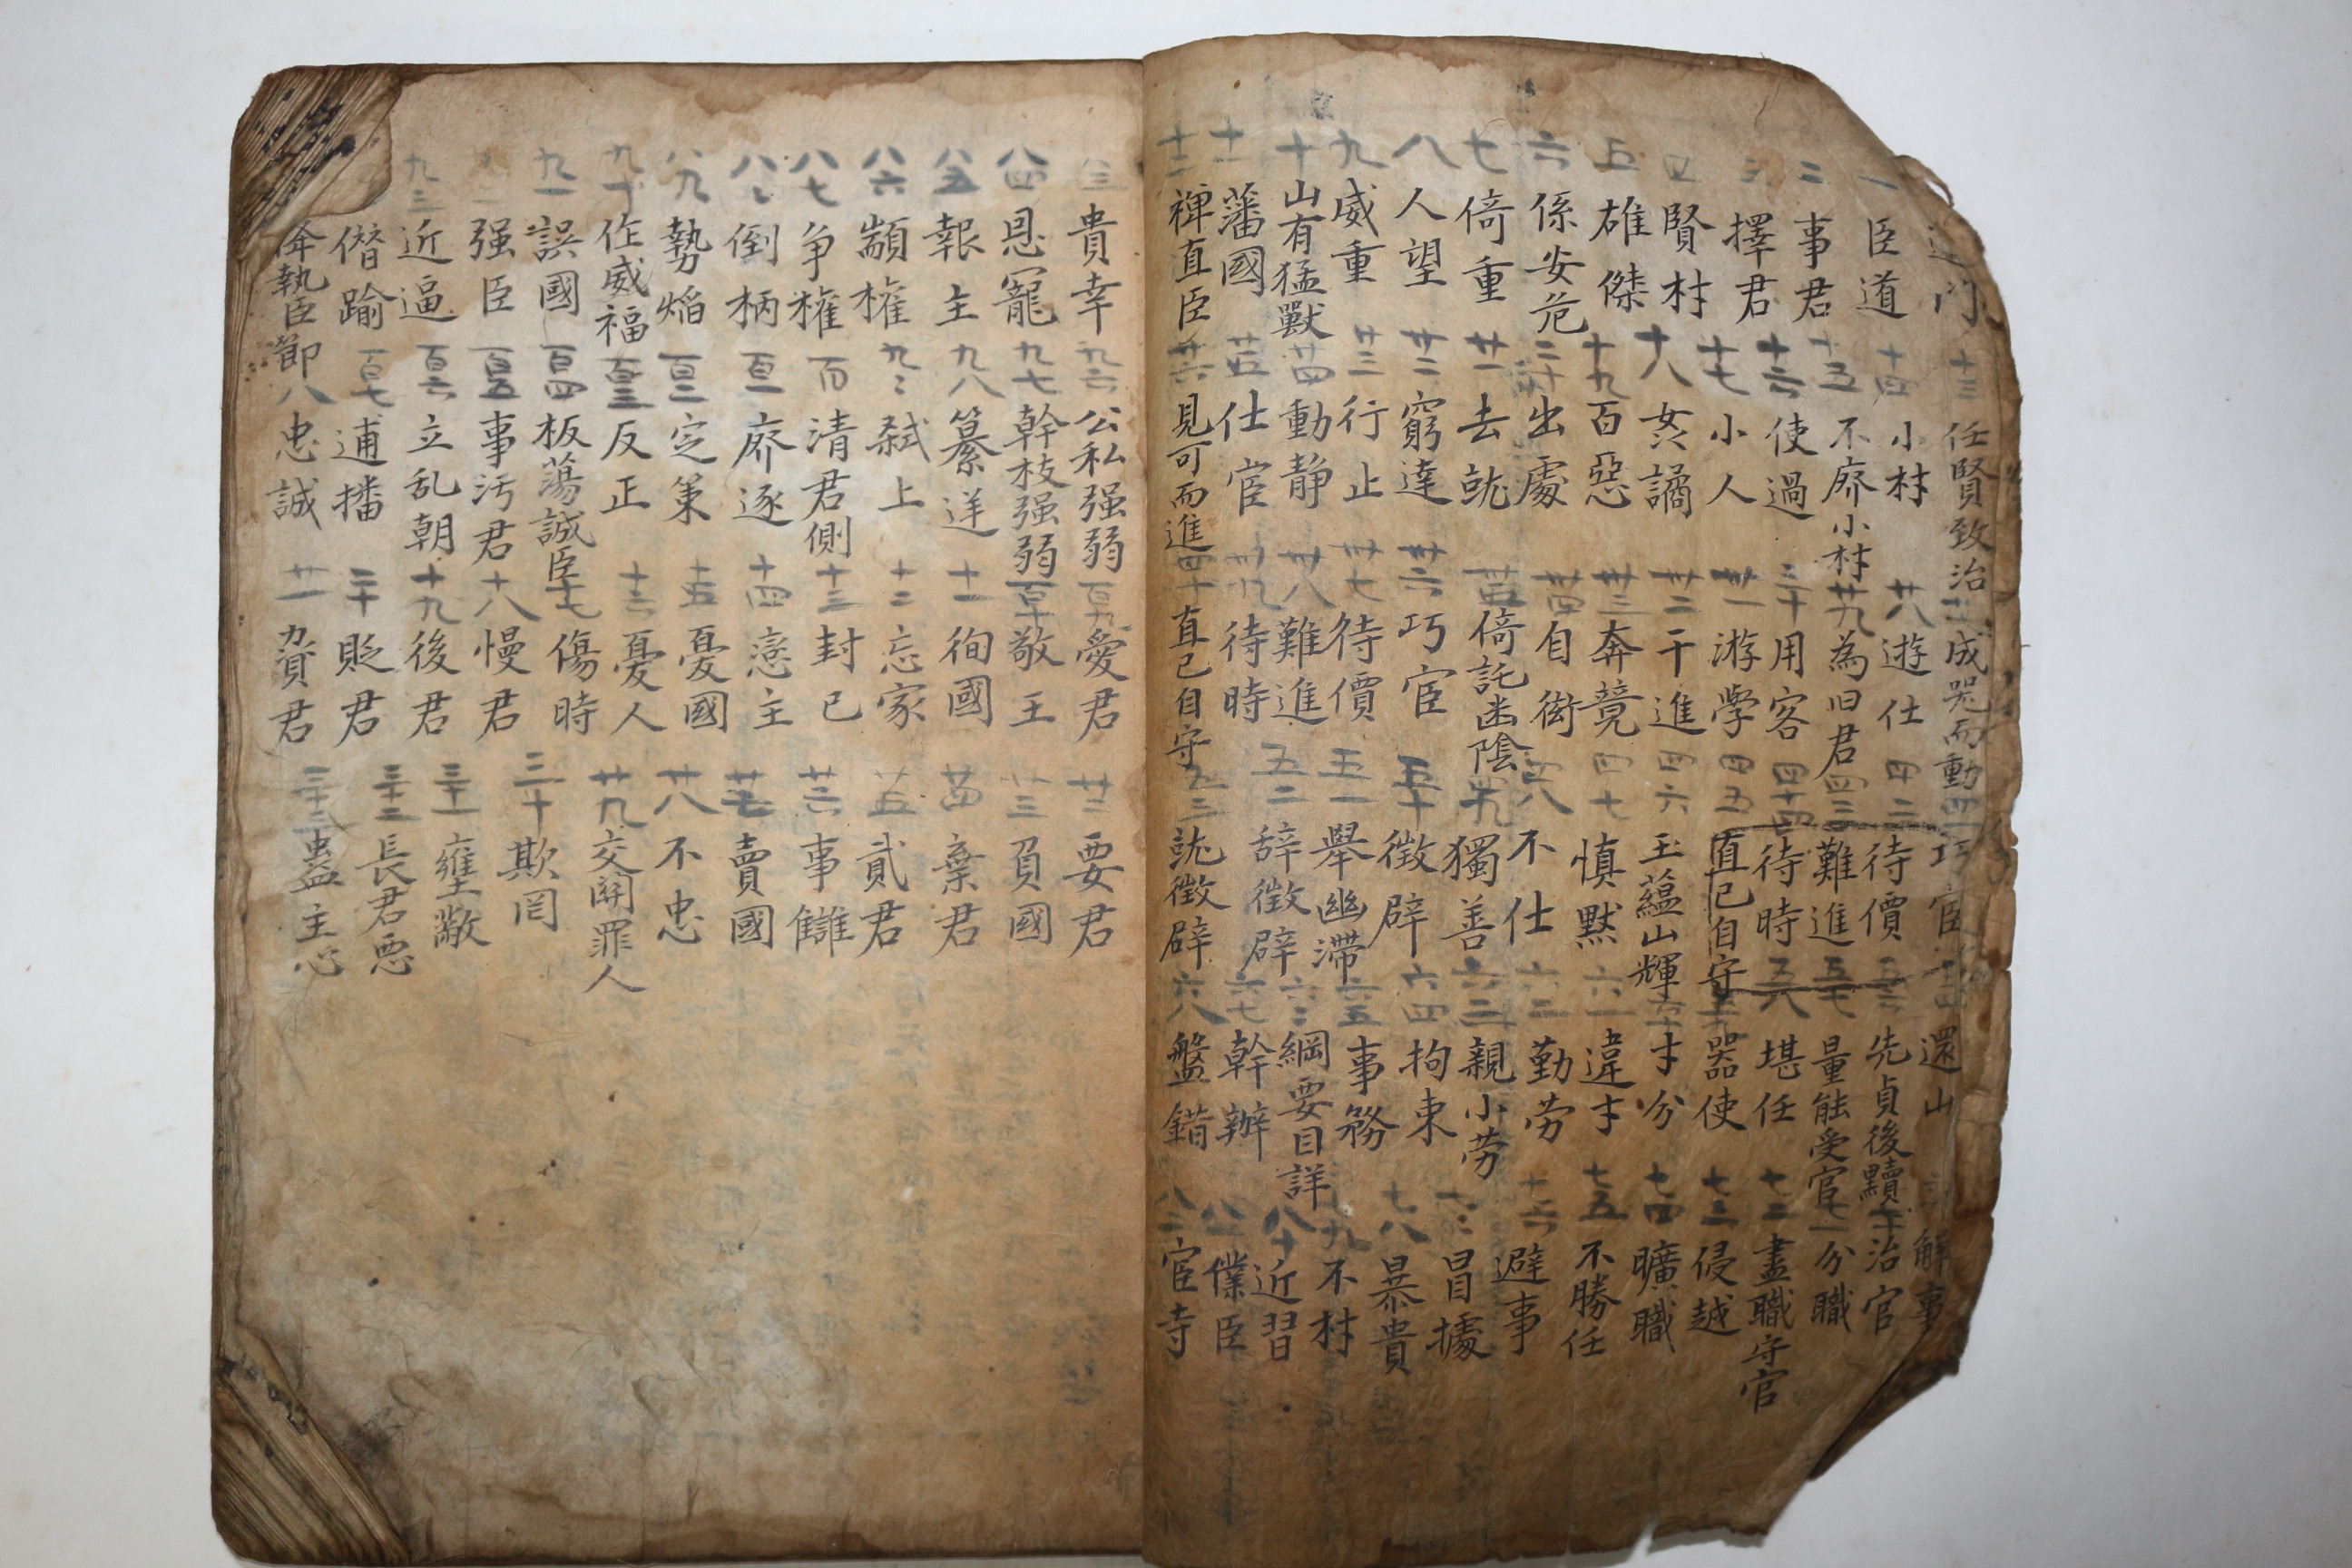 門
一 臣道
二 事君
三 擇君
四 賢材
五 雄傑
六 係安危
七 倚重
八 人望
九 威重
十 山有猛獸
十一 藩國
十二 裨直臣
十三 任賢致治
十四 小材
十五 不廢小材
十六 使過
十七 小人
十八 奸譎
十九 百惡
二十 出處
廿一 去就
廿二 窮達
廿三 行止
廿四 動静
廿五 仕宦
廿六 見可而進
成器而動
廿八 遊仕
廿九 為旧君
三十 用客
卅一 游学
卅二 干進
卅三 奔競
卅四 自衒
卅五 倚託幽陰
卅六 巧宦
卅七 待價
卅八 難進
卅九 待時
四十 直己自守
四一 巧宦
四二 待價
四三 難進
四十四 待時
四五 直己自守
四六 玉蘊山輝
四七 慎默
四八 不仕
四九 獨善
五十 徵辟
五一 舉幽滯
五二 辞徵辟
五三 就徵辟
還山
先貞後黷
五七 量能受官
五八 堪任
五九 器使
六十 才分
六一 違才
六二 勤劳
六三 親小劳
六四 拘束
六五 事務
六〻 綱要目詳
六七 幹辦
六八 盤錯
解事
七十 治官
七一 分職
七二 盡職守官
七三 侵越
七四 曠職
七五 不勝任
七六 避事
七〻 冒據
七八 暴貴
七九 不材
八十 近習
八一 僕臣
八二 宦寺
八三 貴幸
八四 恩寵
八五 報主
八六 顓権
八七 争権
八〻 倒柄
八九 勢焰
九十 作威福
九一 誤國
强臣
九三 近逼
僭踰
執臣節
九六 公私强弱
九七 幹枝强弱
九八 纂逆
九〻 弑上
百 清君側
百一 廢逐
百二 定策
百三 反正
百四 板蕩誠臣
百五 事汚君
百六 立乱朝
百七 逋播
八 忠誠
百九 愛君
百十 敬王
十一 徇國
十二 忘家
十三 封己
十四 戀主
十五 憂國
十六 憂人
十七 傷時
十八 慢君
十九 後君
二十 貶君
廿一 賀君
廿二 要君
廿三 負國
廿四 棄君
廿五 貳君
廿六 事讎
廿七 賣國
廿八 不忠
廿九 交関罪人
三十 欺罔
三十一 壅蔽
三十二 長君悪
三十三 蠱主心